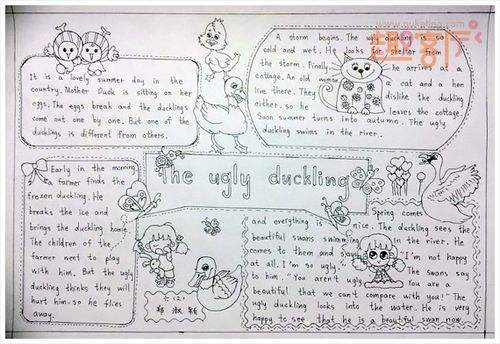 It is a lovely summer day in the
country. Mother Duck is sitting on her
eggs. The egg breaks and the ducklings
come out one by one. But one of the
ducklings is different from others.
A storm begins. The ugly duckling is so
cold and wet. He looks for shelter from
the storm. Finally he arrives at a
cottage. An old woman a cat and a hen
live there. They dislike the duckling
either. so he leaves the cottage.
Soon summer turns into autumn. The ugly
duckling swims in the river.
The ugly duckling
Early in the morning,
a farmer finds the
frozen duckling. He
breaks the ice and
brings the duckling home.
The children of the
farmer went to play
with him. But the ugly
duckling thinks they will
hurt him. so he flies
away.
六(2)
Spring comes
and everything is nice. The duckling sees the
beautiful swans swimming in the river. He
comes to them and says I'm not happy
at all. I'm so ugly." The swans say
to him. "You aren't ugly You are a
beautiful that we can't compare with you!" The
ugly duckling looks into the water. He is very
happy to see that he is a beautiful swan now.